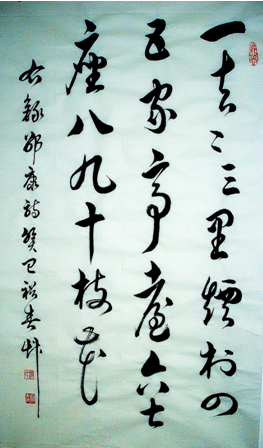 一去二三里烟村四
五家亭台六七
座八九十枝花
右录邵康诗癸巳裕春书